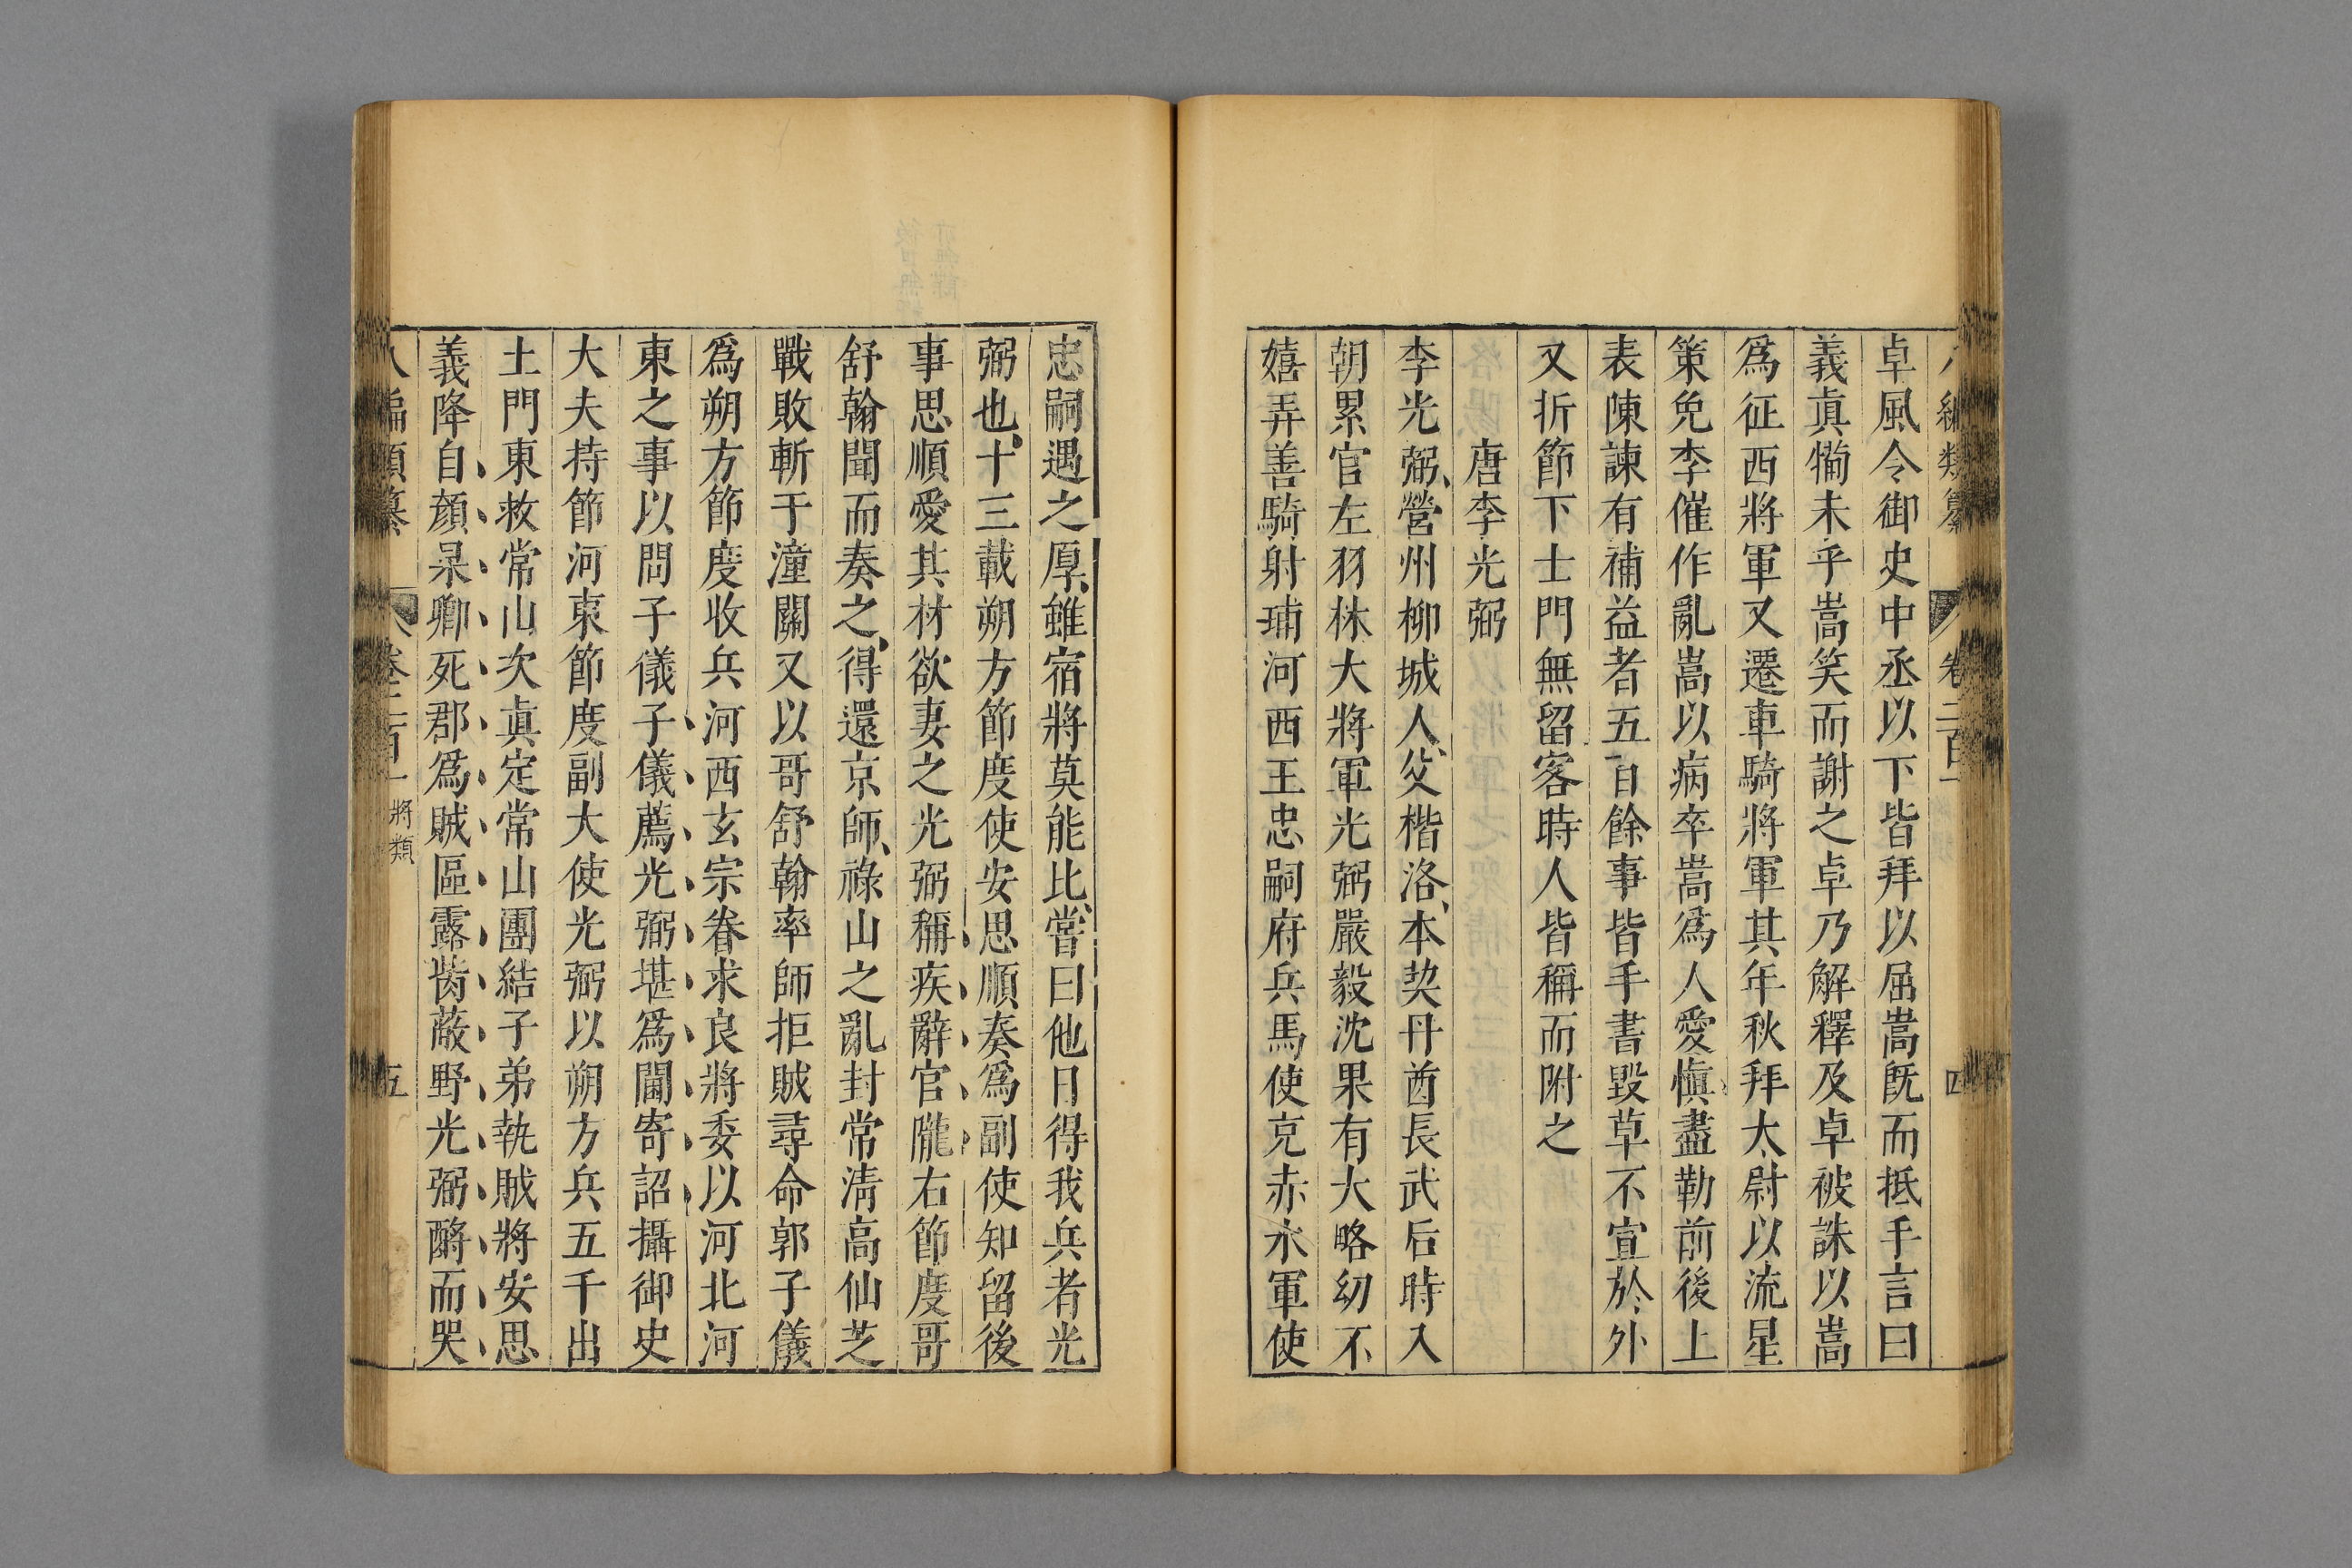 編類纂 卷二百一 四
卓風令御史中丞以下皆拜以屈嵩旣而抵手言曰
義眞犕未乎嵩笑而謝之卓乃解釋及卓被誅以嵩
爲征西將軍又遷車騎將軍其年秋拜太尉以流星
策免李傕作亂嵩以病卒嵩爲人愛愼盡勤前後上
表陳諫有補益者五百餘事皆手書毀草不宣於外
又折節下士門無留客時人皆稱而附之
唐李光弼
李光弼、營州柳城人、父楷洛、本契丹酋長武后時入
朝累官左羽林大將軍光弼嚴毅沈果有大略幼不
嬉弄善騎射補河西王忠嗣府兵馬使充赤水軍使
忠嗣遇之厚、雖宿將莫能比、嘗曰他日得我兵者光
弼也、十三載朔方節度使安思順奏爲副使知留後
事思順愛其材欲妻之光弼稱疾辭官隴右節度哥
舒翰聞而奏之、得還京師、祿山之亂封常淸高仙芝
戰敗斬于潼關又以哥舒翰率師拒賊尋命郭子儀
爲朔方節度收兵河西玄宗眷求良將委以河北河
東之事以問子儀子儀薦光弼堪爲閫寄詔攝御史
大夫持節河東節度副大使光弼以朔方兵五千出
土門東救常山次眞定常山團結子弟執賊將安思
義降自顏杲卿死郡爲賊區露胔蔽野光弼酹而哭
八編類纂 卷二百一 將類 五